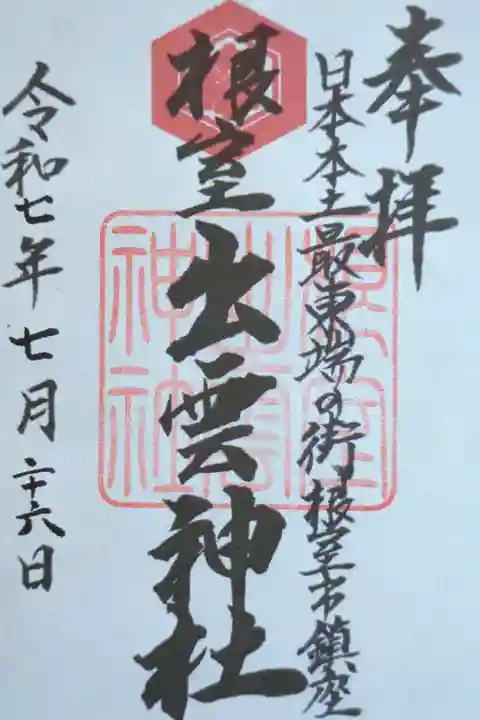 奉拝
日本本土最東端の街根室市鎮座
根室出雲神社
令和七年七月二十六日
根室
出雲
神社